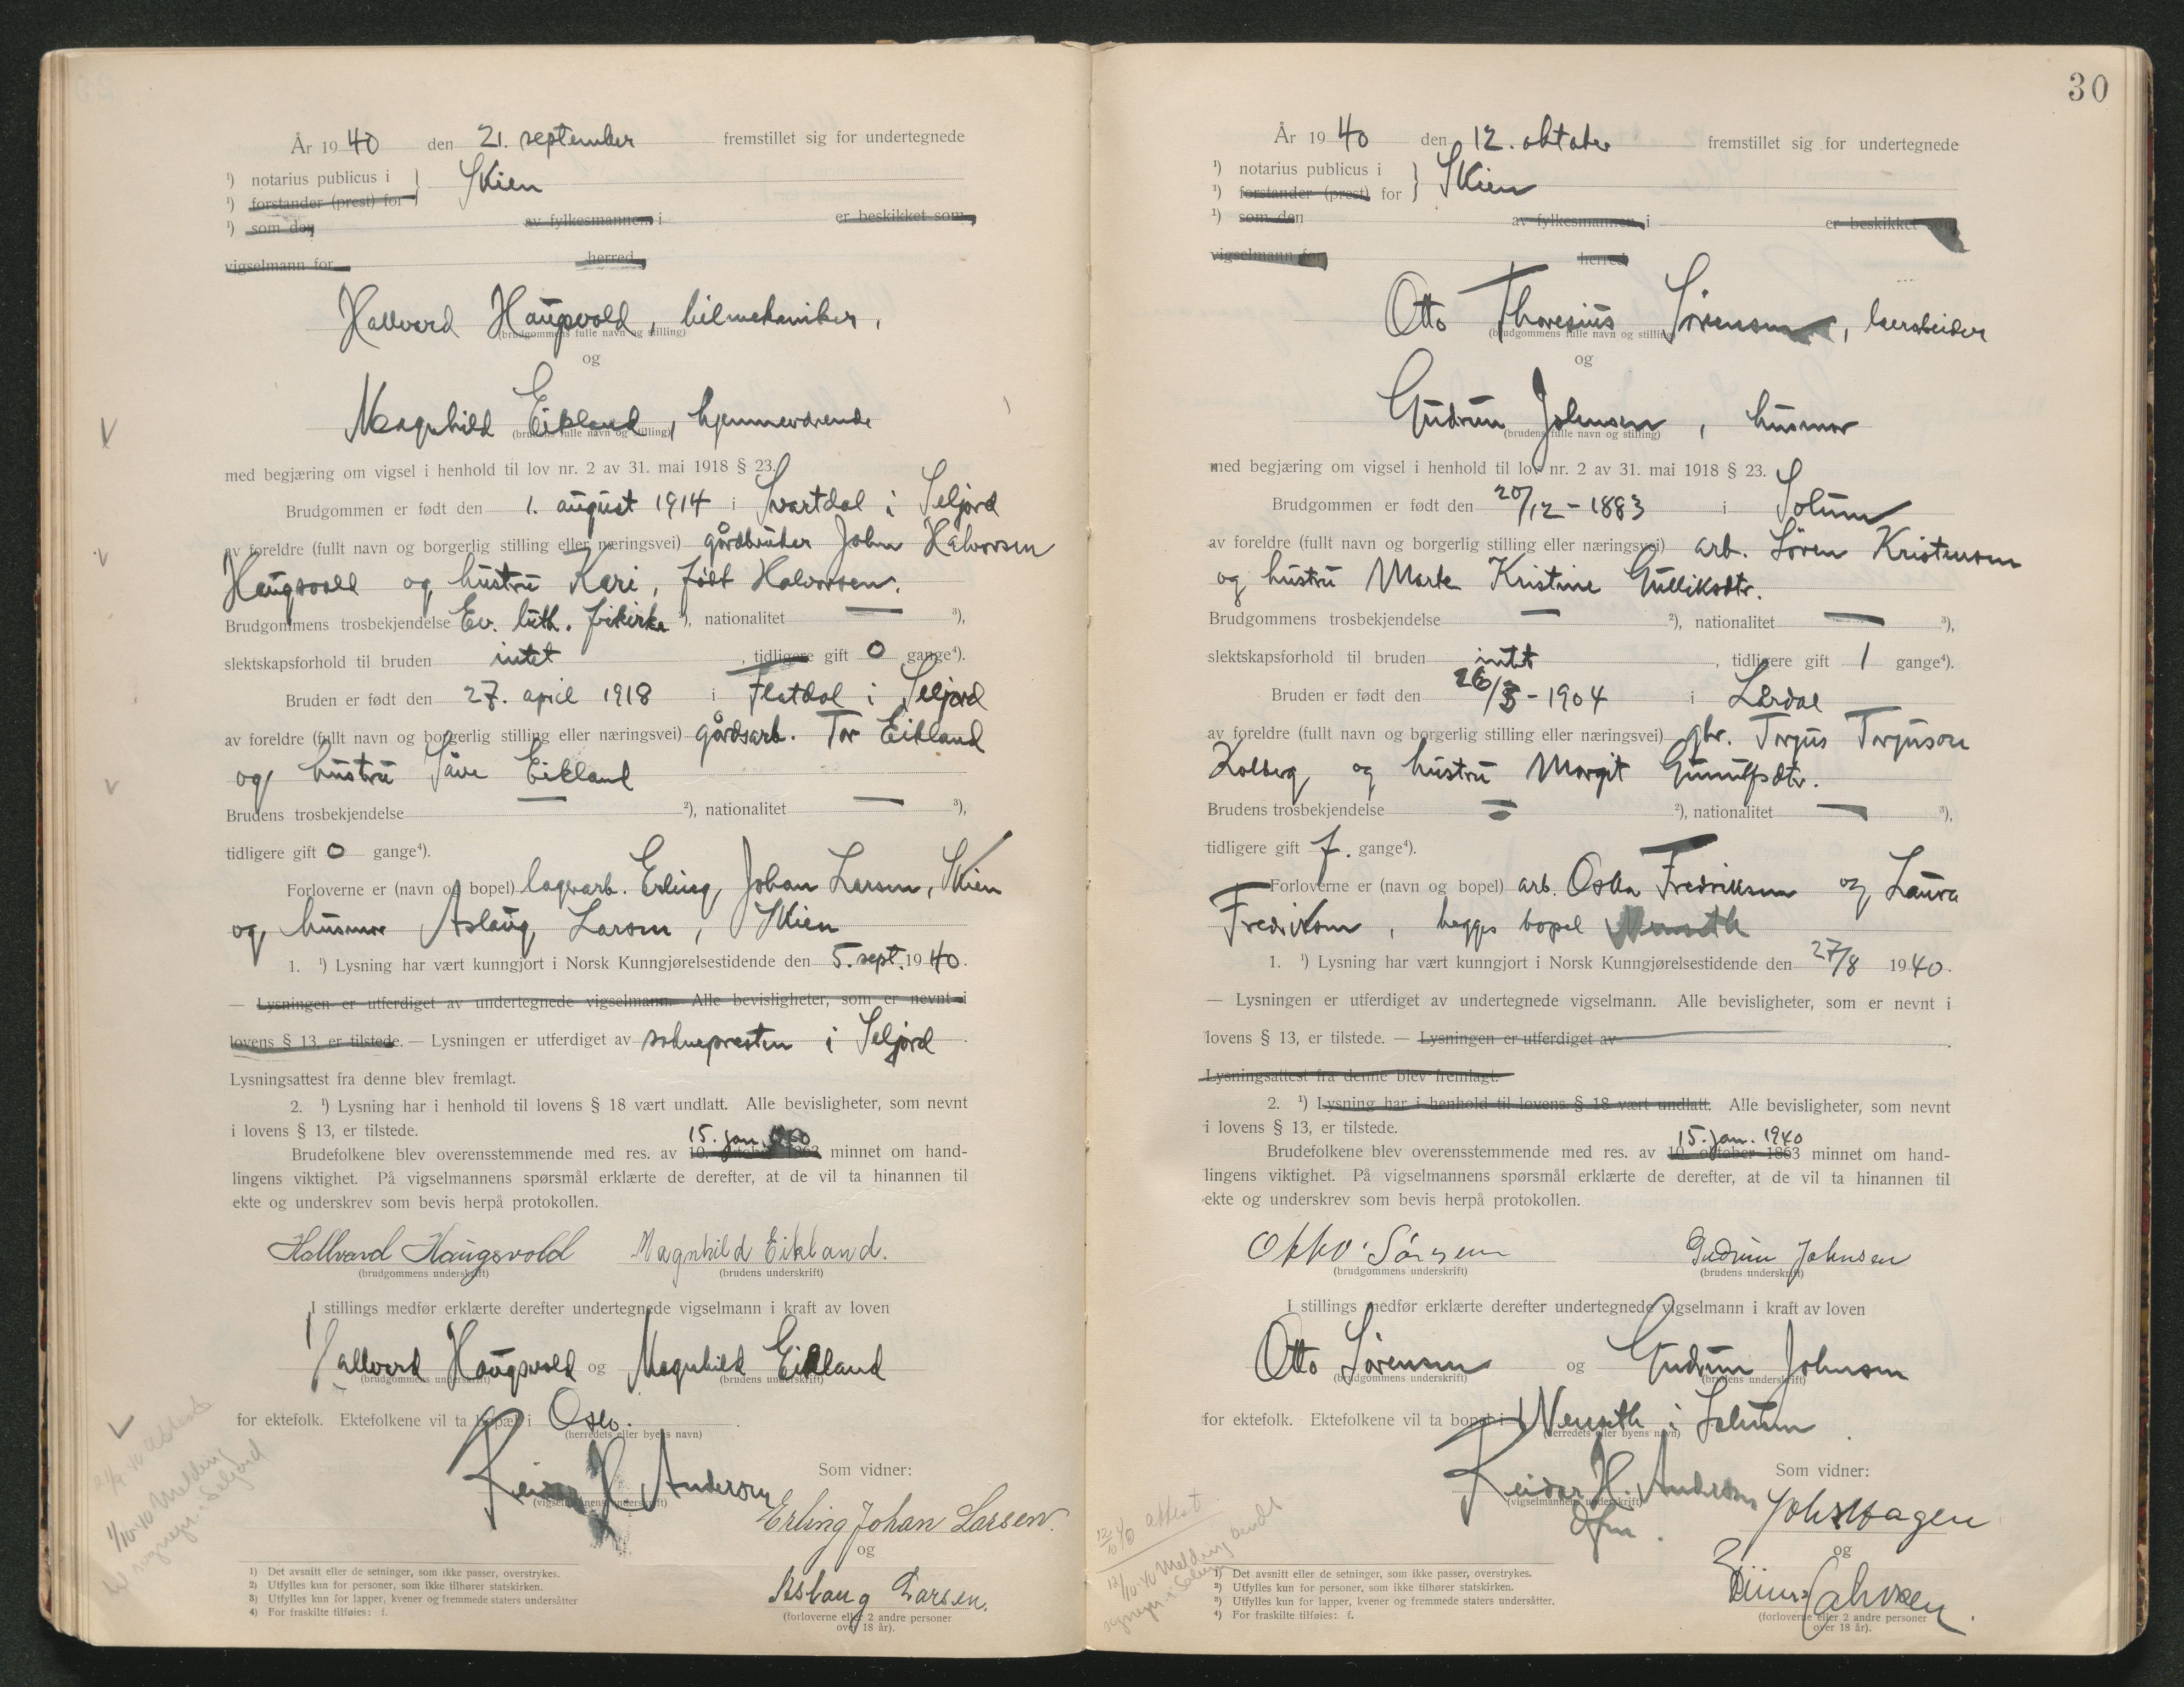 År 1940 den 21. september fremstillet sig for undertegnede
¹) notarius publicus i } Skien
¹) forstander (prest) for
¹) som den av fylkesmannen i er beskikket som
vigselmann for herred
Hallvard Haugsvold, bilmekaniker,
(brudgommens fulle navn og stilling)
og
Magnhild Eikland, hjemmeværende
(brudens fulle navn og stilling)
med begjæring om vigsel i henhold til lov nr. 2 av 31. mai 1918 § 23.
Brudgommen er født den 1. august 1914 i Svartdal i Seljord
av foreldre (fullt navn og borgerlig stilling eller næringsvei) gårdbruker John Halvorsen
Haugsvold og hustru Kari, født Halvorsen.
Brudgommens trosbekjendelse Ev. luth. frikirke ²), nationalitet — ³),
slektskapsforhold til bruden intet, tidligere gift 0 gange⁴).
Bruden er født den 27. april 1918 i Flatdal i Seljord
av foreldre (fullt navn og borgerlig stilling eller næringsvei) gårdsarb. Tor Eikland
og hustru Såve Eikland
Brudens trosbekjendelse — ²), nationalitet — ³),
tidligere gift 0 gange⁴).
Forloverne er (navn og bopel) lagerarb. Erling Johan Larsen, Skien
og husmor Aslaug Larsen, Skien
1. ¹) Lysning har vært kunngjort i Norsk Kunngjørelsestidende den 5. sept. 1940.
— Lysningen er utferdiget av undertegnede vigselmann. Alle bevisligheter, som er nevnt i
lovens § 13, er tilstede. — Lysningen er utferdiget av soknepresten i Seljord.
Lysningsattest fra denne blev fremlagt.
2. ¹) Lysning har i henhold til lovens § 18 vært undlatt. Alle bevisligheter, som nevnt
i lovens § 13, er tilstede.
15. jan. 1940
Brudefolkene blev overensstemmende med res. av 10. oktober 1863 minnet om hand-
lingens viktighet. På vigselmannens spørsmål erklærte de derefter, at de vil ta hinannen til
ekte og underskrev som bevis herpå protokollen.
Hallvard Haugsvold Magnhild Eikland.
(brudgommens underskrift) (brudens underskrift)
I stillings medfør erklærte derefter undertegnede vigselmann i kraft av loven
Hallvard Haugsvold og Magnhild Eikland
(brudgommens underskrift) (brudens underskrift)
for ektefolk. Ektefolkene vil ta bopæl i Oslo.
(herredets eller byens navn)
Reidar H. Andersen
(vigselmannens underskrift)
Som vidner:
Erling Johan Larsen.
og
Aslaug Larsen.
(forloverne eller 2 andre personer
over 18 år).
21/9 40 attest
1/10-40 Melding
til sognepr. i Seljord
1) Det avsnitt eller de setninger, som ikke passer, overstrykes.
2) Utfylles kun for personer, som ikke tilhører statskirken.
3) Utfylles kun for lapper, kvener og fremmede staters undersåtter
4) For fraskilte tilføies: f.
30
År 1940 den 12. oktober fremstillet sig for undertegnede
¹) notarius publicus i } Skien
¹) forstander (prest) for
¹) som den av fylkesmannen i er beskikket som
vigselmann for herred
Otto Thoresius Sørensen, løsarbeider
(brudgommens fulle navn og stilling)
og
Gudrun Johnsen, husmor
(brudens fulle navn og stilling)
med begjæring om vigsel i henhold til lov nr. 2 av 31. mai 1918 § 23.
Brudgommen er født den 20/12-1883 i Solum
av foreldre (fullt navn og borgerlig stilling eller næringsvei) arb. Søren Kristensen
og hustru Marte Kristine Gulliksdtr.
Brudgommens trosbekjendelse — ²), nationalitet — ³),
slektskapsforhold til bruden intet, tidligere gift 1 gange⁴).
Bruden er født den 26/3-1904 i Lårdal
av foreldre (fullt navn og borgerlig stilling eller næringsvei) gbr. Torjus Torjuson
Kolberg og hustru Margit Gunulfsdtr.
Brudens trosbekjendelse — ²), nationalitet — ³),
tidligere gift f. gange⁴).
Forloverne er (navn og bopel) arb. Oskar Fredriksen og Laura
Fredriksen, begges bopel Mensth
1. ¹) Lysning har vært kunngjort i Norsk Kunngjørelsestidende den 27/8 1940.
— Lysningen er utferdiget av undertegnede vigselmann. Alle bevisligheter, som er nevnt i
lovens § 13, er tilstede. — Lysningen er utferdiget av
Lysningsattest fra denne blev fremlagt.
2. ¹) Lysning har i henhold til lovens § 18 vært undlatt. Alle bevisligheter, som nevnt
i lovens § 13, er tilstede.
15. jan. 1940
Brudefolkene blev overensstemmende med res. av 10. oktober 1863 minnet om hand-
lingens viktighet. På vigselmannens spørsmål erklærte de derefter, at de vil ta hinannen til
ekte og underskrev som bevis herpå protokollen.
Otto Sørensen Gudrun Johnsen
(brudgommens underskrift) (brudens underskrift)
I stillings medfør erklærte derefter undertegnede vigselmann i kraft av loven
Otto Sørensen og Gudrun Johnsen
(brudgommens underskrift) (brudens underskrift)
for ektefolk. Ektefolkene vil ta bopel i i Solum.
(herredets eller byens navn)
Reidar H. Andersen
(vigselmannens underskrift)
Som vidner:
Joh. Hagen
og
(forloverne eller 2 andre personer
over 18 år).
12/10 40 attest
12/10-40 Melding sendt
sognepr. i Solum
¹) Det avsnitt eller de setninger, som ikke passer, overstrykes.
²) Utfylles kun for personer, som ikke tilhører statskirken.
³) Utfylles kun for lapper, kvener og fremmede staters undersåtter.
⁴) For fraskilte tilføies: f.